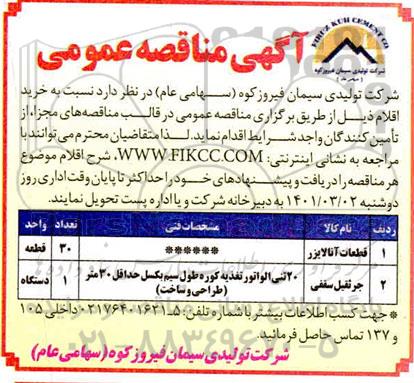 FIRUZ KUH CEMENT CO
شرکت تولیدی سیمان فیروزکوه
(سهامی عام)
آگهی مناقصه عمومی
شرکت تولیدی سیمان فیروزکوه (سهامی عام) در نظر دارد نسبت به خرید
اقلام ذیل از طریق برگزاری مناقصه عمومی در قالب مناقصه‌های مجزا، از
تأمین کنندگان واجد شرایط اقدام نماید. لذا متقاضیان محترم می‌توانند با
مراجعه به نشانی اینترنتی: WWW.FIKCC.COM، شرح اقلام موضوع
هر مناقصه را دریافت و پیشنهادهای خود را حداکثر تا پایان وقت اداری روز
دوشنبه ۱۴۰۱/۰۳/۰۲ به دبیرخانه شرکت و یا اداره پست تحویل نمایند.
ردیف نام کالا مشخصات فنی تعداد واحد
۱ قطعات آنالایزر ****** ۳۰ قطعه
۲ جرثقیل سقفی ۲۰ تنی الواتور تغذیه کوره طول سیم بکسل حداقل ۳۰ متر (طراحی و ساخت) ۱ دستگاه
* جهت کسب اطلاعات بیشتر با شماره تلفن: ۵-۰۲۱۷۶۴۰۱۶۳۱ داخلی ۱۰۵
و ۱۳۷ تماس حاصل فرمائید.
شرکت تولیدی سیمان فیروزکوه (سهامی عام)
۰۲۱-۸۸۳۴۹۶۷۰-۵